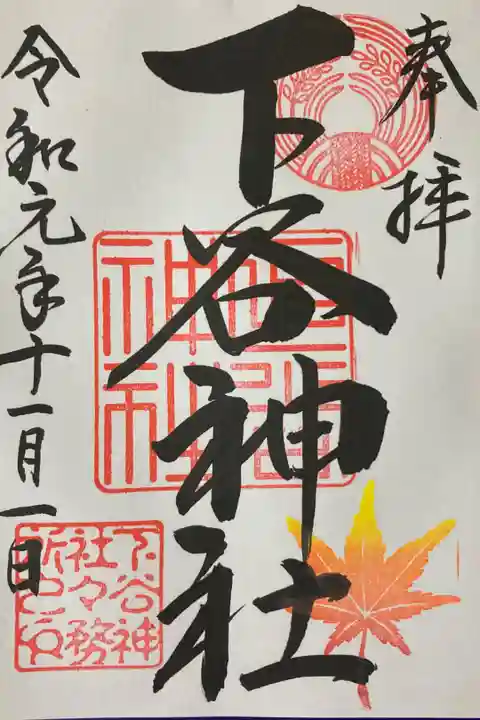 奉拝
下谷神社
令和元年十一月一日
下谷神社
下谷神
社々務
所之印